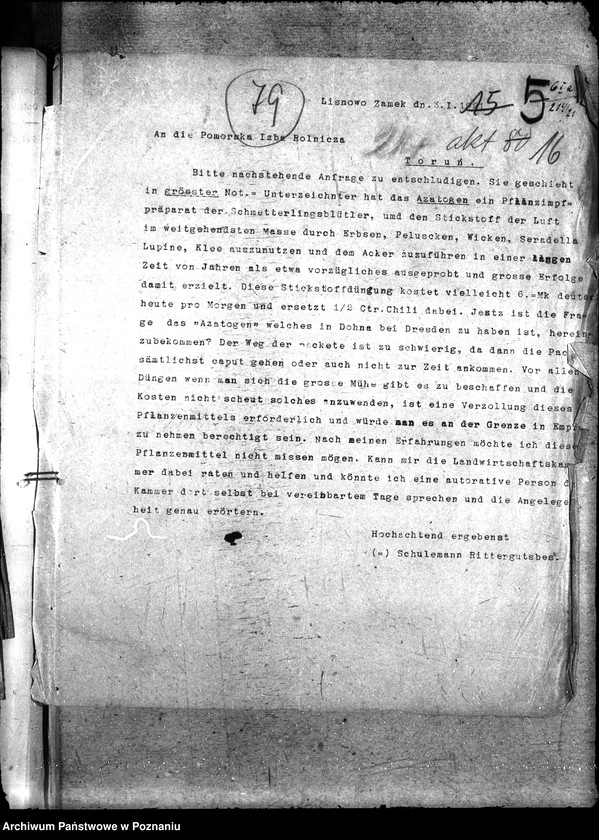 79
Lisnowo Zamek dn. 3.I.
15
5
An die Pomorska Izba Rolnicza
akt 80 16
Toruń.
Bitte nachstehende Anfrage zu entschludigen. Sie geschieht
in grösster Not.= Unterzeichnter hat das Azatogen ein Pflanzimpf=
präparat der Schmetterlingsblütler, umd den Stickstoff der Luft
im weitgehendsten Masse durch Erbsen, Peluscken, Wicken, Seradella
Lupine, Klee auszunutzen und dem Acker zuzuführen in einer langen
Zeit von Jahren als etwa vorzügliches ausgeprobt und grosse Erfolge
damit erzielt. Diese Stickstoffdüngung kostet vielleicht 6.=Mk deuts
heute pro Morgen und ersetzt 1/2 Ctr.Chili dabei. Jestz ist die Fra=
ge das "Azatogen" welches in Dohna bei Dresden zu haben ist, herein
zubekommen? Der Weg der Packete ist zu schwierig, da dann die Pac
sämtlichst caput gehen oder auch nicht zur Zeit ankommen. Vor allen
Düngen wenn man sich die grosse Mühe gibt es zu beschaffen und die
Kosten nicht scheut solches anzuwenden, ist eine Verzollung dieses
Pflanzenmittels erforderlich und würde man es an der Grenze in Empf
zu nehmen berechtigt sein. Nach meinen Erfahrungen möchte ich diese
Pflanzenmittel nicht missen mögen. Kann mir die Landwirtschaftskam
mer dabei raten und helfen und könnte ich eine autorative Person d
Kammer dort selbst bei vereinbartem Tage sprechen und die Angelege
heit genau erörtern.
Hochachtend ergebenst
(=) Schulemann Rittergutsbes.
Archiwum Państwowe w Poznaniu